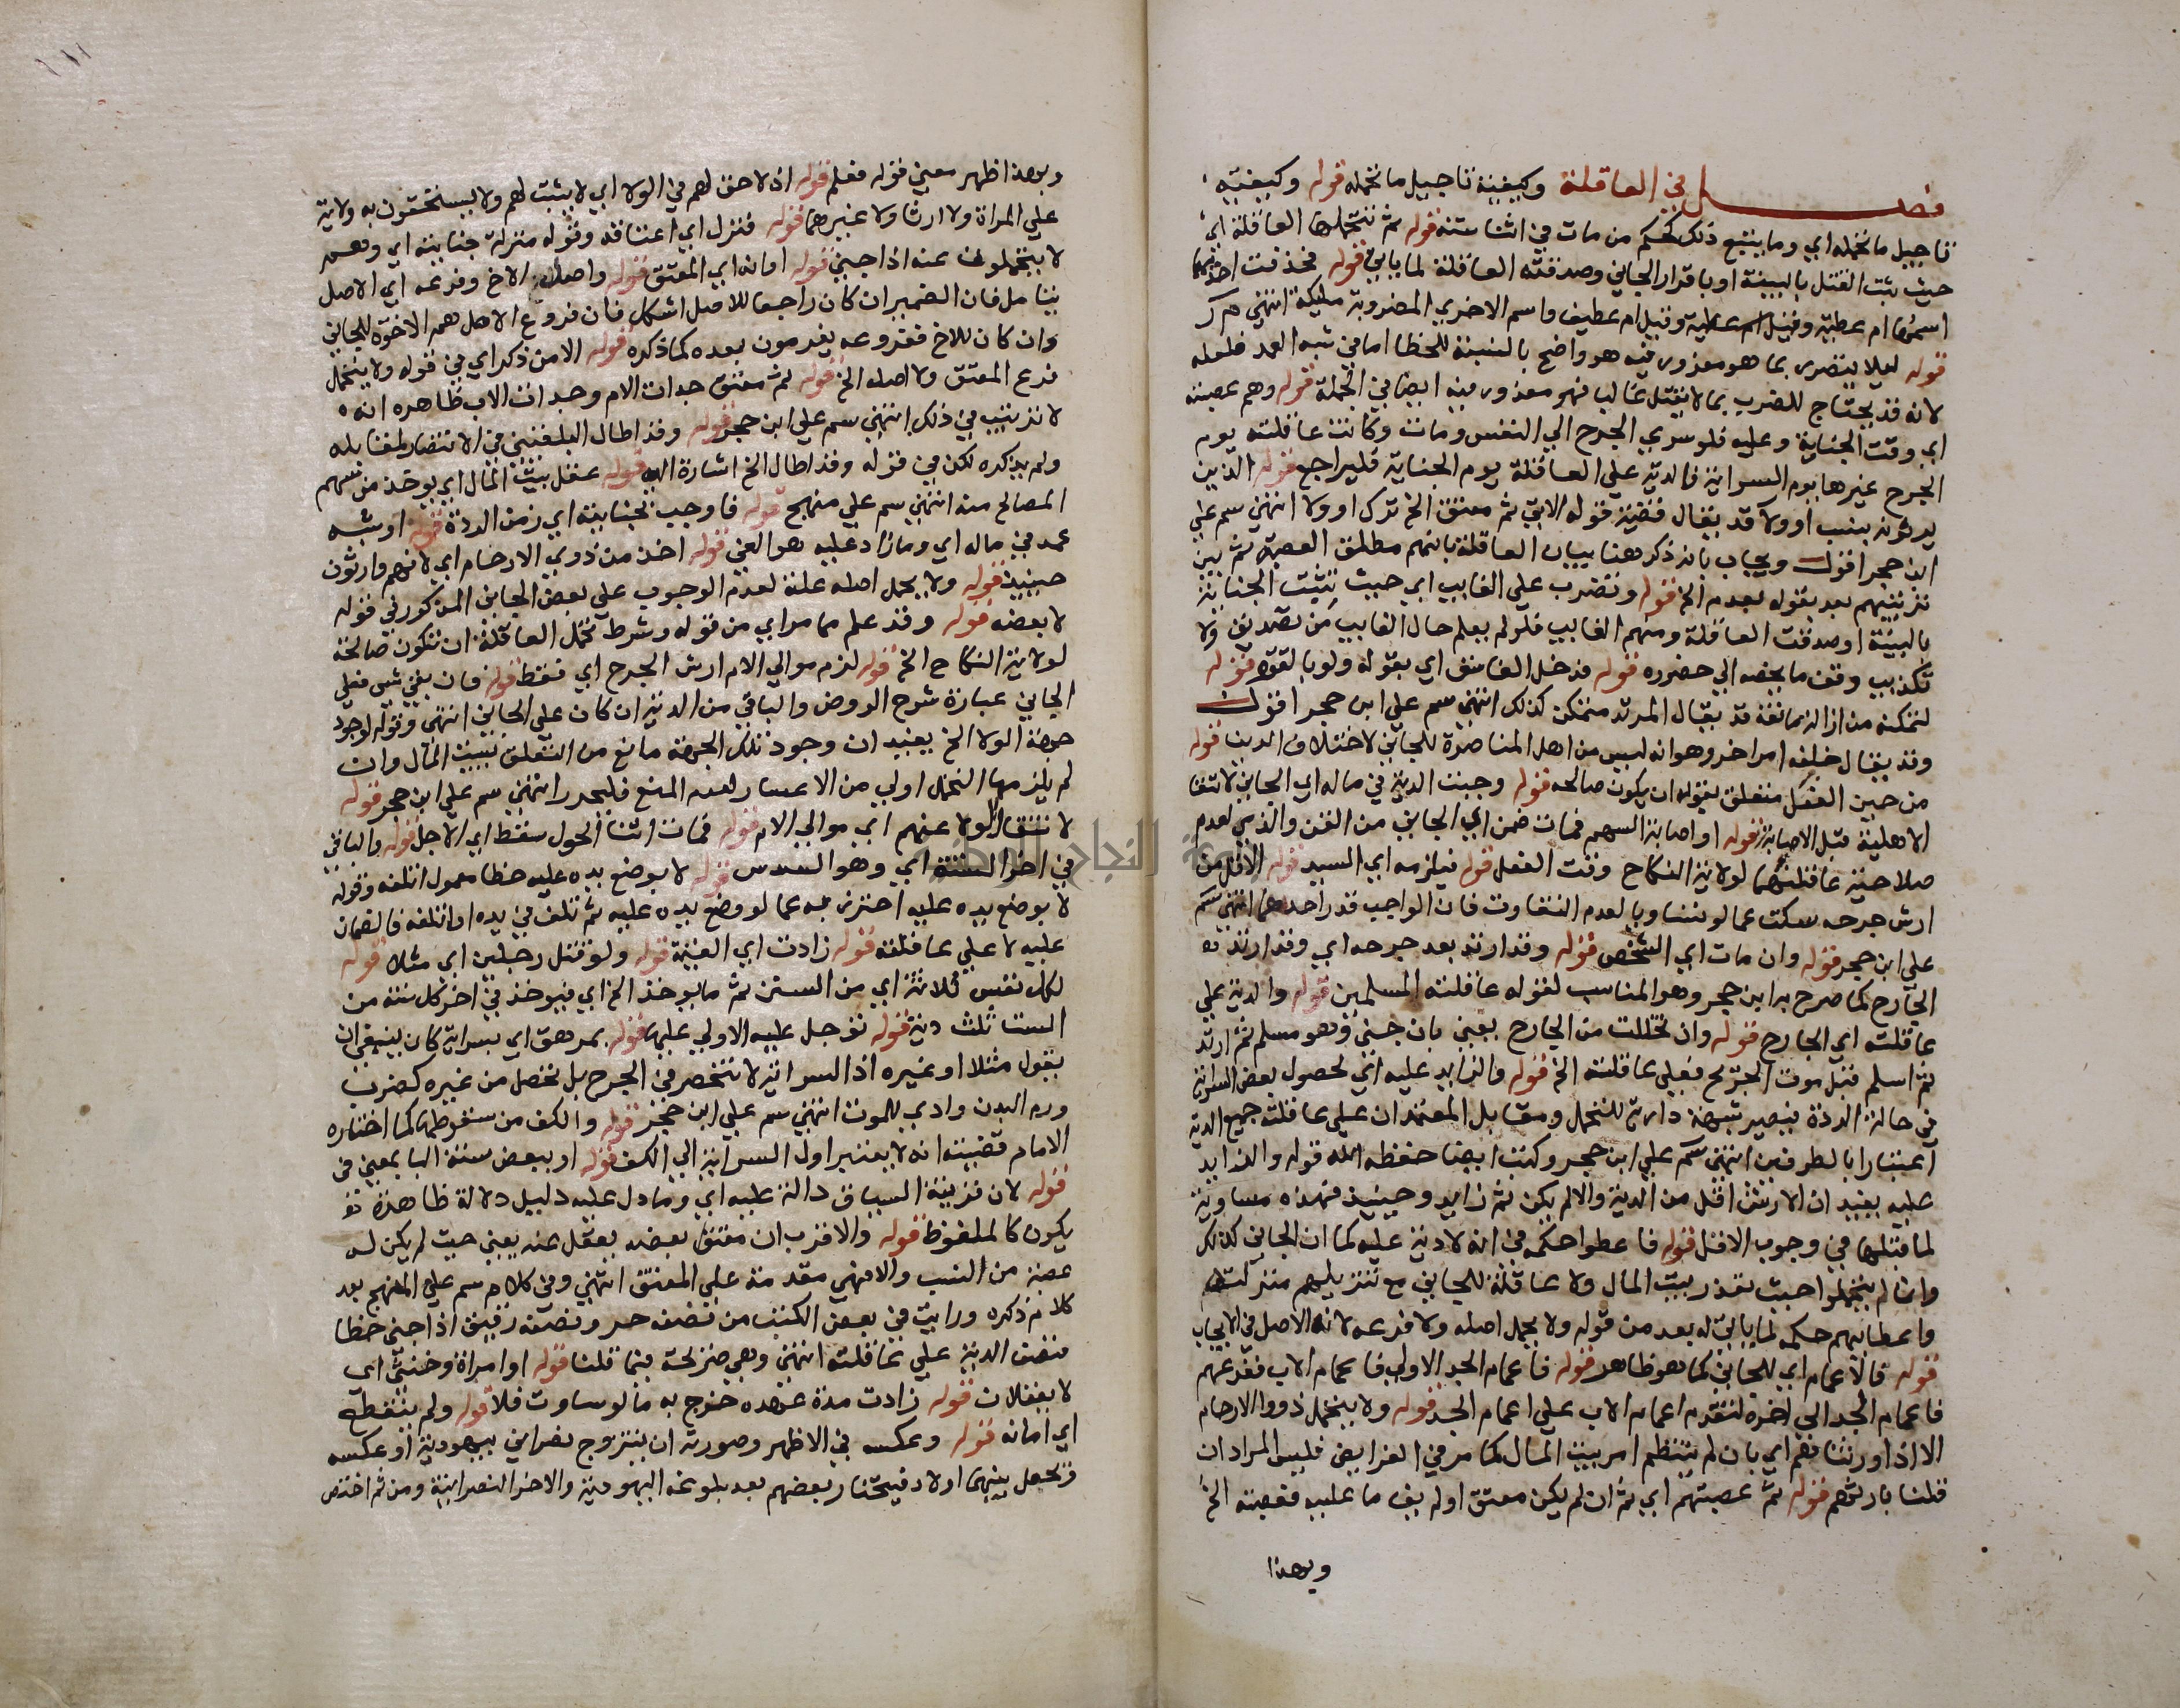 فصل في العاقلة وكيفية تاجيل ما تحمله قوله وكيفية
تاجيل ما تحمله اي وما يتبع ذلك كحكم من مات في اثنا سنة قوله ثم تتحملها العاقلة اي
حيث ثبت القتل بالبينة او باقرار الجاني وصدقته العاقلة لما ياتي قوله فحذفت احداهما
اسمها ام عطية وقيل ام عطية وقيل ام عطيف واسم الاخري المضروبة مليكة انتهي م ر
قوله ليلا يتضرر بما هو معذور فيه هو واضح بالنسبة للخطا اما في شبه العمد فلعله
لانه قد يحتاج للضرب بما لا يقتل غالبا فهو معذور فيه ايضا في الجملة قوله وهم عصبته
اي وقت الجناية وعليه فلو سري الجرح الي النفس ومات وكانت عاقلته يوم
الجرح غيرها يوم السراية فالدية علي العاقلة يوم الجناية فليراجع قوله الذين
يرثونه بنسب او ولا قد يقال قضية قوله الاتي ثم معتق الخ ترك او ولا انتهي سم علي
ابن حجر اقول ويجاب بانه ذكر هنا بيان العاقلة بانهم مطلق العصبة ثم بين
ترتيبهم بعد بقوله يقدم الخ قوله وتضرب علي الغايب اي حيث تثبت الجناية
بالبينة او صدقت العاقلة ومنهم الغايب فلو لم يعلم حال الغايب من تصديق ولا
تكذيب وقف ما يخصه الي حضوره قوله فدخل الفاسق اي بقوله ولو بالقوة قوله
لتمكنه من ازالة مانعه قد يقال المرتد متمكن كذلك انتهي سم علي ابن حجر اقول
وقد يقال خلفه امر اخر وهو انه ليس من اهل المناصرة للجاني لاختلاف الدين قوله
من حين الفعل متعلق بقوله ان يكون صالحه قوله وجبت الدية في ماله اي الجاني لانتفا
الاهلية قبل الاصابة قوله او اصابة السهم فمات ضمن اي الجاني من القن والذمي لعدم
صلاحية عاقلتهما لولاية النكاح وقت الفعل قوله فيلزمه اي السيد قوله الاقل من
ارش جرحه سكت عما لو تساويا لعدم التفاوت فان الواجب قدر احدهما انتهي سم
علي ابن حجر قوله وان مات اي الشخص قوله وقد ارتد بعد جرحه اي وقد ارتد
الجارح كما صرح به ابن حجر وهو المناسب لقوله عاقلته المسلمين قوله والدية علي
عاقلته اي الجارح قوله وان تخللت من الجارح يعني بان جني وهو مسلم ثم ارتد
ثم اسلم قبل موت الجريح فعلي عاقلته الخ قوله والزايد عليه اي لحصول بعض السراية
في حالة الردة فيصير شبهة دارئة للتحمل ومقابل المعتمد ان علي عاقلته جميع الدية
اعتبارا بالطرفين انتهي سم علي ابن حجر وكتب ايضا حفظه الله قوله والزايد
عليه يفيد ان الارش اقل من الدية والا لم يكن ثم زايد وحينيذ فهذه مساوية
لما قبلها في وجوب الاقل قوله فاعطوا حكمه في انه لا دية عليه كما ان الجاني كذلك
وانما لم يتحملوا حيث تعذر بيت المال ولا عاقلة للجاني مع تنزيلهم منزلته
واعطايهم حكمه لما ياتي له بعد من قوله ولا يحمل اصله ولا فرعه لانه الاصل في الايجاب
قوله فالاعمام اي للجاني كما هو ظاهر قوله فاعمام الجد الاولي فاعمام الاب ففرعهم
فاعمام الجد الي اخره لتقدم اعمام الاب علي اعمام الجد قوله ولا يتحمل ذووا الارحام
الا اذا ورثناهم اي بان لم ينتظم امر بيت المال كما مر في الفرايض فليس المراد ان
قلنا بارثهم قوله ثم عصبتهم اي ثم ان لم يكن معتق اوله يف ما عليه فعصبته الخ
وبهذا
وبهذا ظهر معني قوله فعلم قوله اذ لا حق لهم في الولا اي لا يثبت لهم ولا يستحقون به ولاية
علي المراة ولا ارثا ولا غيرهما قوله فنزل اي اعتاقه وقوله منزلة جنايته اي وهم
لا يتحملون عنه اذا جني قوله اما انه اي المعتق قوله واصل الاخ وفرعه اي الاصل
يتامل فان الضمير ان كان راجعا للاصل اشكل فان فروع الاصل هم الاخوة للجاني
وان كان للاخ ففروعه يغرمون بعده كما ذكره قوله الا من ذكر اي في قوله ولا يتحمل
فرع المعتق ولا اصله الخ قوله ثم معتق جدات الام وجدات الاب ظاهره انه
لا ترتيب في ذلك انتهي سم علي ابن حجر قوله وقد اطال البلقيني في الانتصار لمقابله
ولم يذكره لكن في قوله وقد اطال الخ اشارة اليه قوله عقل بيت المال اي يوخذ من سهم
المصالح منه انتهي سم علي منهج قوله فاوجب بجنايته اي زمن الردة قوله او شبه
عمد في ماله اي وما زاد عليه هو العني قوله اخذ من ذوي الارحام اي لانهم وارثون
حينيذ قوله ولا يحمل اصله علة لعدم الوجوب علي بعض الجاني المذكور في قوله
لا بعضه قوله وقد علم مما مر اي من قوله وشرط تحمل العاقلة ان تكون صالحة
لولاية النكاح الخ قوله لزم موالي الام ارش الجرح اي فقط قوله فان بقي شي فعلي
الجاني عبارة شرح الروض والباقي من الدية ان كان علي الجاني انتهي وقوله لوجود
جهة الولا الخ يفيد ان وجود تلك الجهة مانع من التعلق ببيت المال وان
لم يلزمها التحمل اولي من الاعسار لهذا المنع فليحرر انتهي سم علي ابن حجر قوله
لانتقال الولا عنهم اي موالي الام قوله فمات اثنا الحول سقط اي الاجل قوله والباقي
في اخر السنة اي وهو السدس قوله لا بوضع يده عليه خطا معمول اتلفه وقوله
لا بوضع يده عليه احترز به عما لو وضع يده عليه ثم تلف في يده او اتلفه فالضمان
عليه لا علي عاقلته قوله زادت اي القيمة قوله ولو قتل رجلين اي مثلا قوله
لكل نفس ثلاثة اي من السنين ثم ما يوخذ الخ اي فيوخذ في اخر كل سنة من
الست ثلث دية قوله توجل عليه الاولي عليها قوله بمرهق اي بسراية كان ينبغي ان
يقول مثلا او غيره اذ السراية لا تنحصر في الجرح بل تحصل من غيره كضرب
ورم البدن وادي للموت انتهي سم علي ابن حجر قوله والكف من سقوطها كما اختاره
الامام قضيته انه لا يعتبر اول السراية الي الكف قوله او ببعض سنة البا بمعني في
قوله لان قرينة السياق دالة عليه اي وما دل عليه دليل دلالة ظاهرة
يكون كالملفوظ قوله والاقرب ان معتق بعضه يعقل عنه يعني حيث لم يكن له
عصبة من النسب والا فهي مقدمة علي المعتق انتهي وفي كلام سم علي المنهج بعد
كلام ذكره ورايت في بعض الكتب من نصفه حر ونصفه رقيق اذا جني خطا
فنصف الدية علي عاقلته انتهي وهي صريحة فيما قلنا قوله او امراة وخنثي اي
لا يعقلان قوله زادت مدة عهده خرج به ما لو ساوت فلا قوله ولم ينقطع
اي امانه قوله وعكسه في الاظهر وصورته ان يتزوج نصراني بيهودية او عكسه
فيحصل بينهما اولاد فيختار بعضهم بعد بلوغه اليهودية والاخر النصرانية ومن ثم اختص